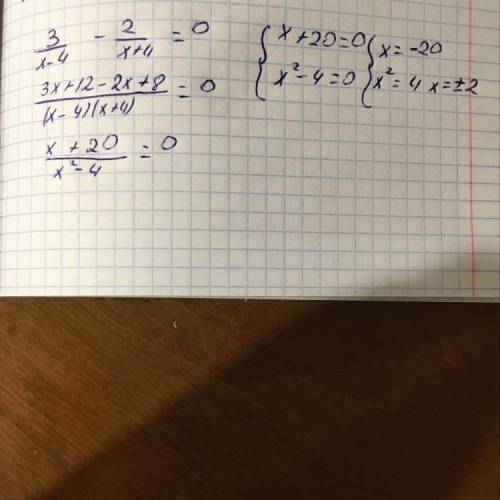 3/(x-4) - 2/(x+4) = 0
(3x+12-2x+8)/((x-4)(x+4)) = 0
(x+20)/(x²-4) = 0
{ x+20=0 { x=-20
{ x²-4=0 { x²=4 x=±2